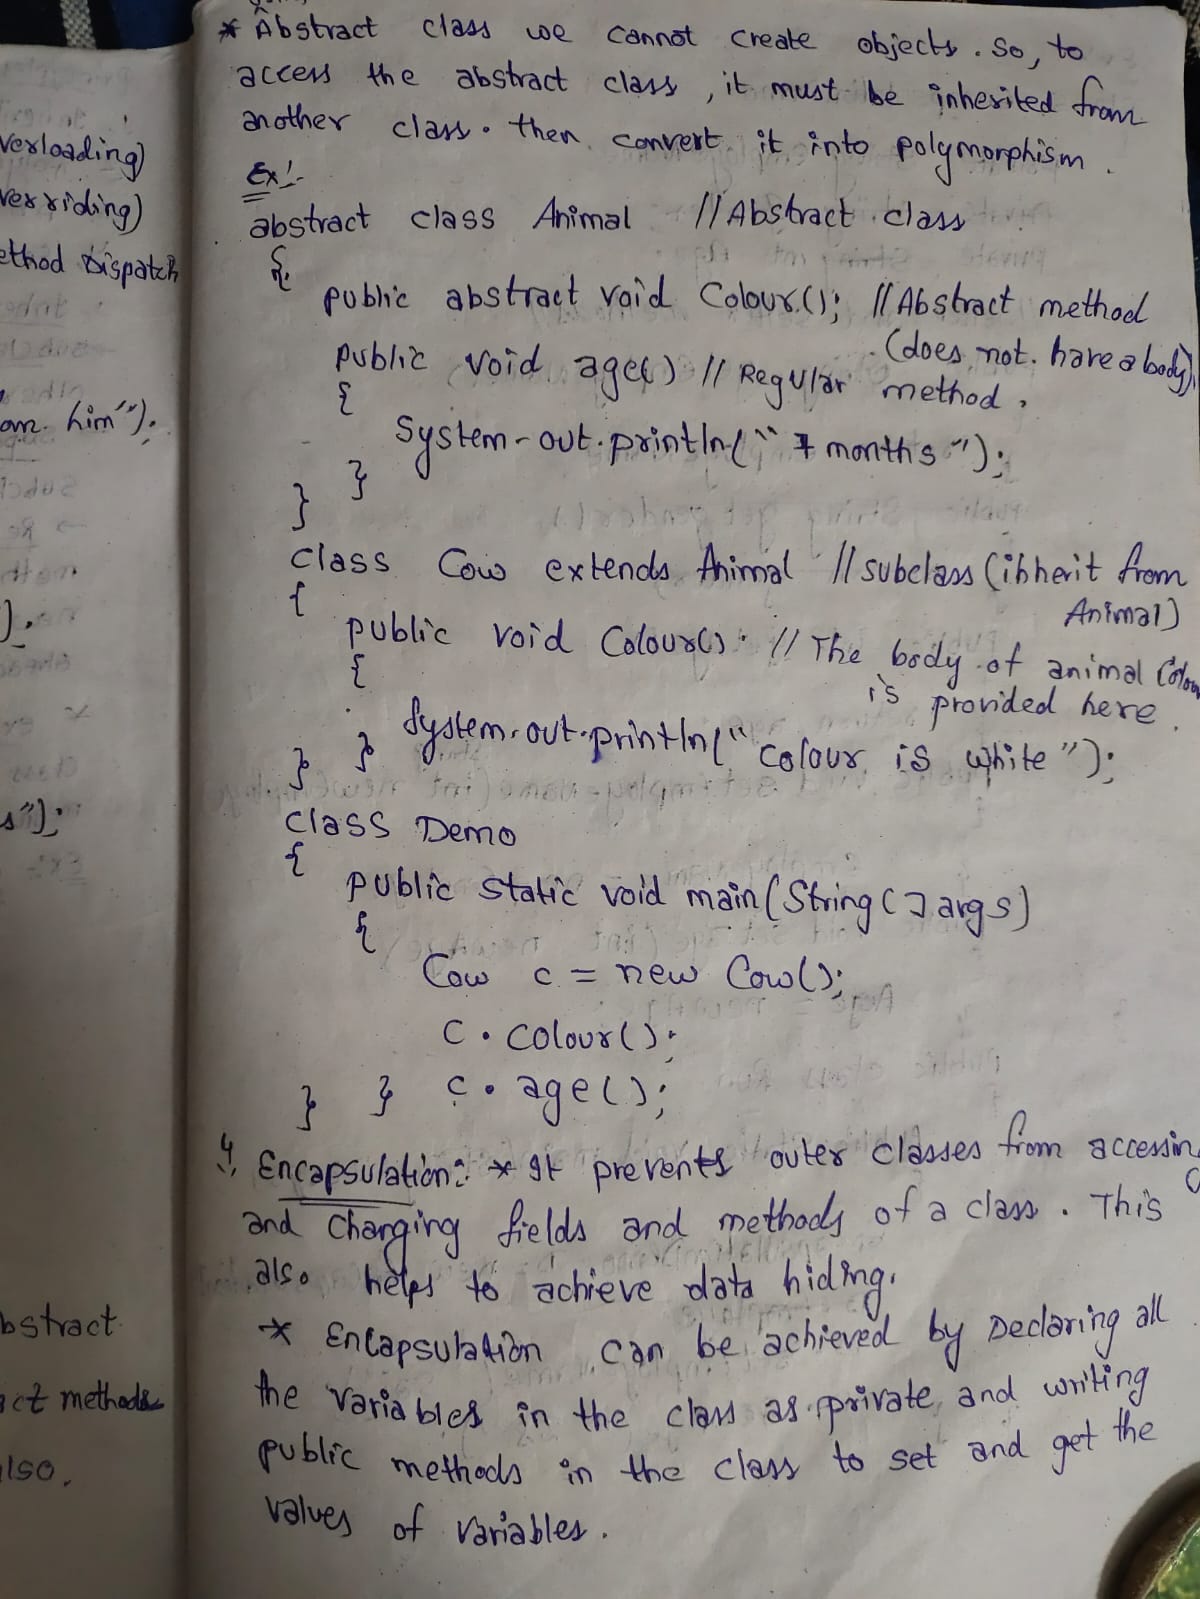 * Abstract class we cannot create objects. So, to
access the abstract class, it must be inherited from
another class. then convert it into polymorphism.
Ex:-
abstract class Animal //Abstract class
{
public abstract void Colour(); //Abstract method
(does not have a body)
public void age() // Regular method.
{
System.out.println("7 months");
}
}
class Cow extends Animal //subclass (ibherit from
Animal)
{
public void Colour() // The body of animal Colou
is provided here.
{
System.out.println("colour is white");
} }
class Demo
{
public static void main(String[] args)
{
Cow c = new Cow();
c.colour();
c.age();
} }
4. Encapsulation:- * It prevents outer classes from accessing
and changing fields and methods of a class. This
also helps to achieve data hiding.
* Encapsulation can be achieved by Declaring all
the variables in the class as private and writing
public methods in the class to set and get the
values of variables.
verloading)
verriding)
ethod Dispatch
him").
s");
bstract
act methods
also.